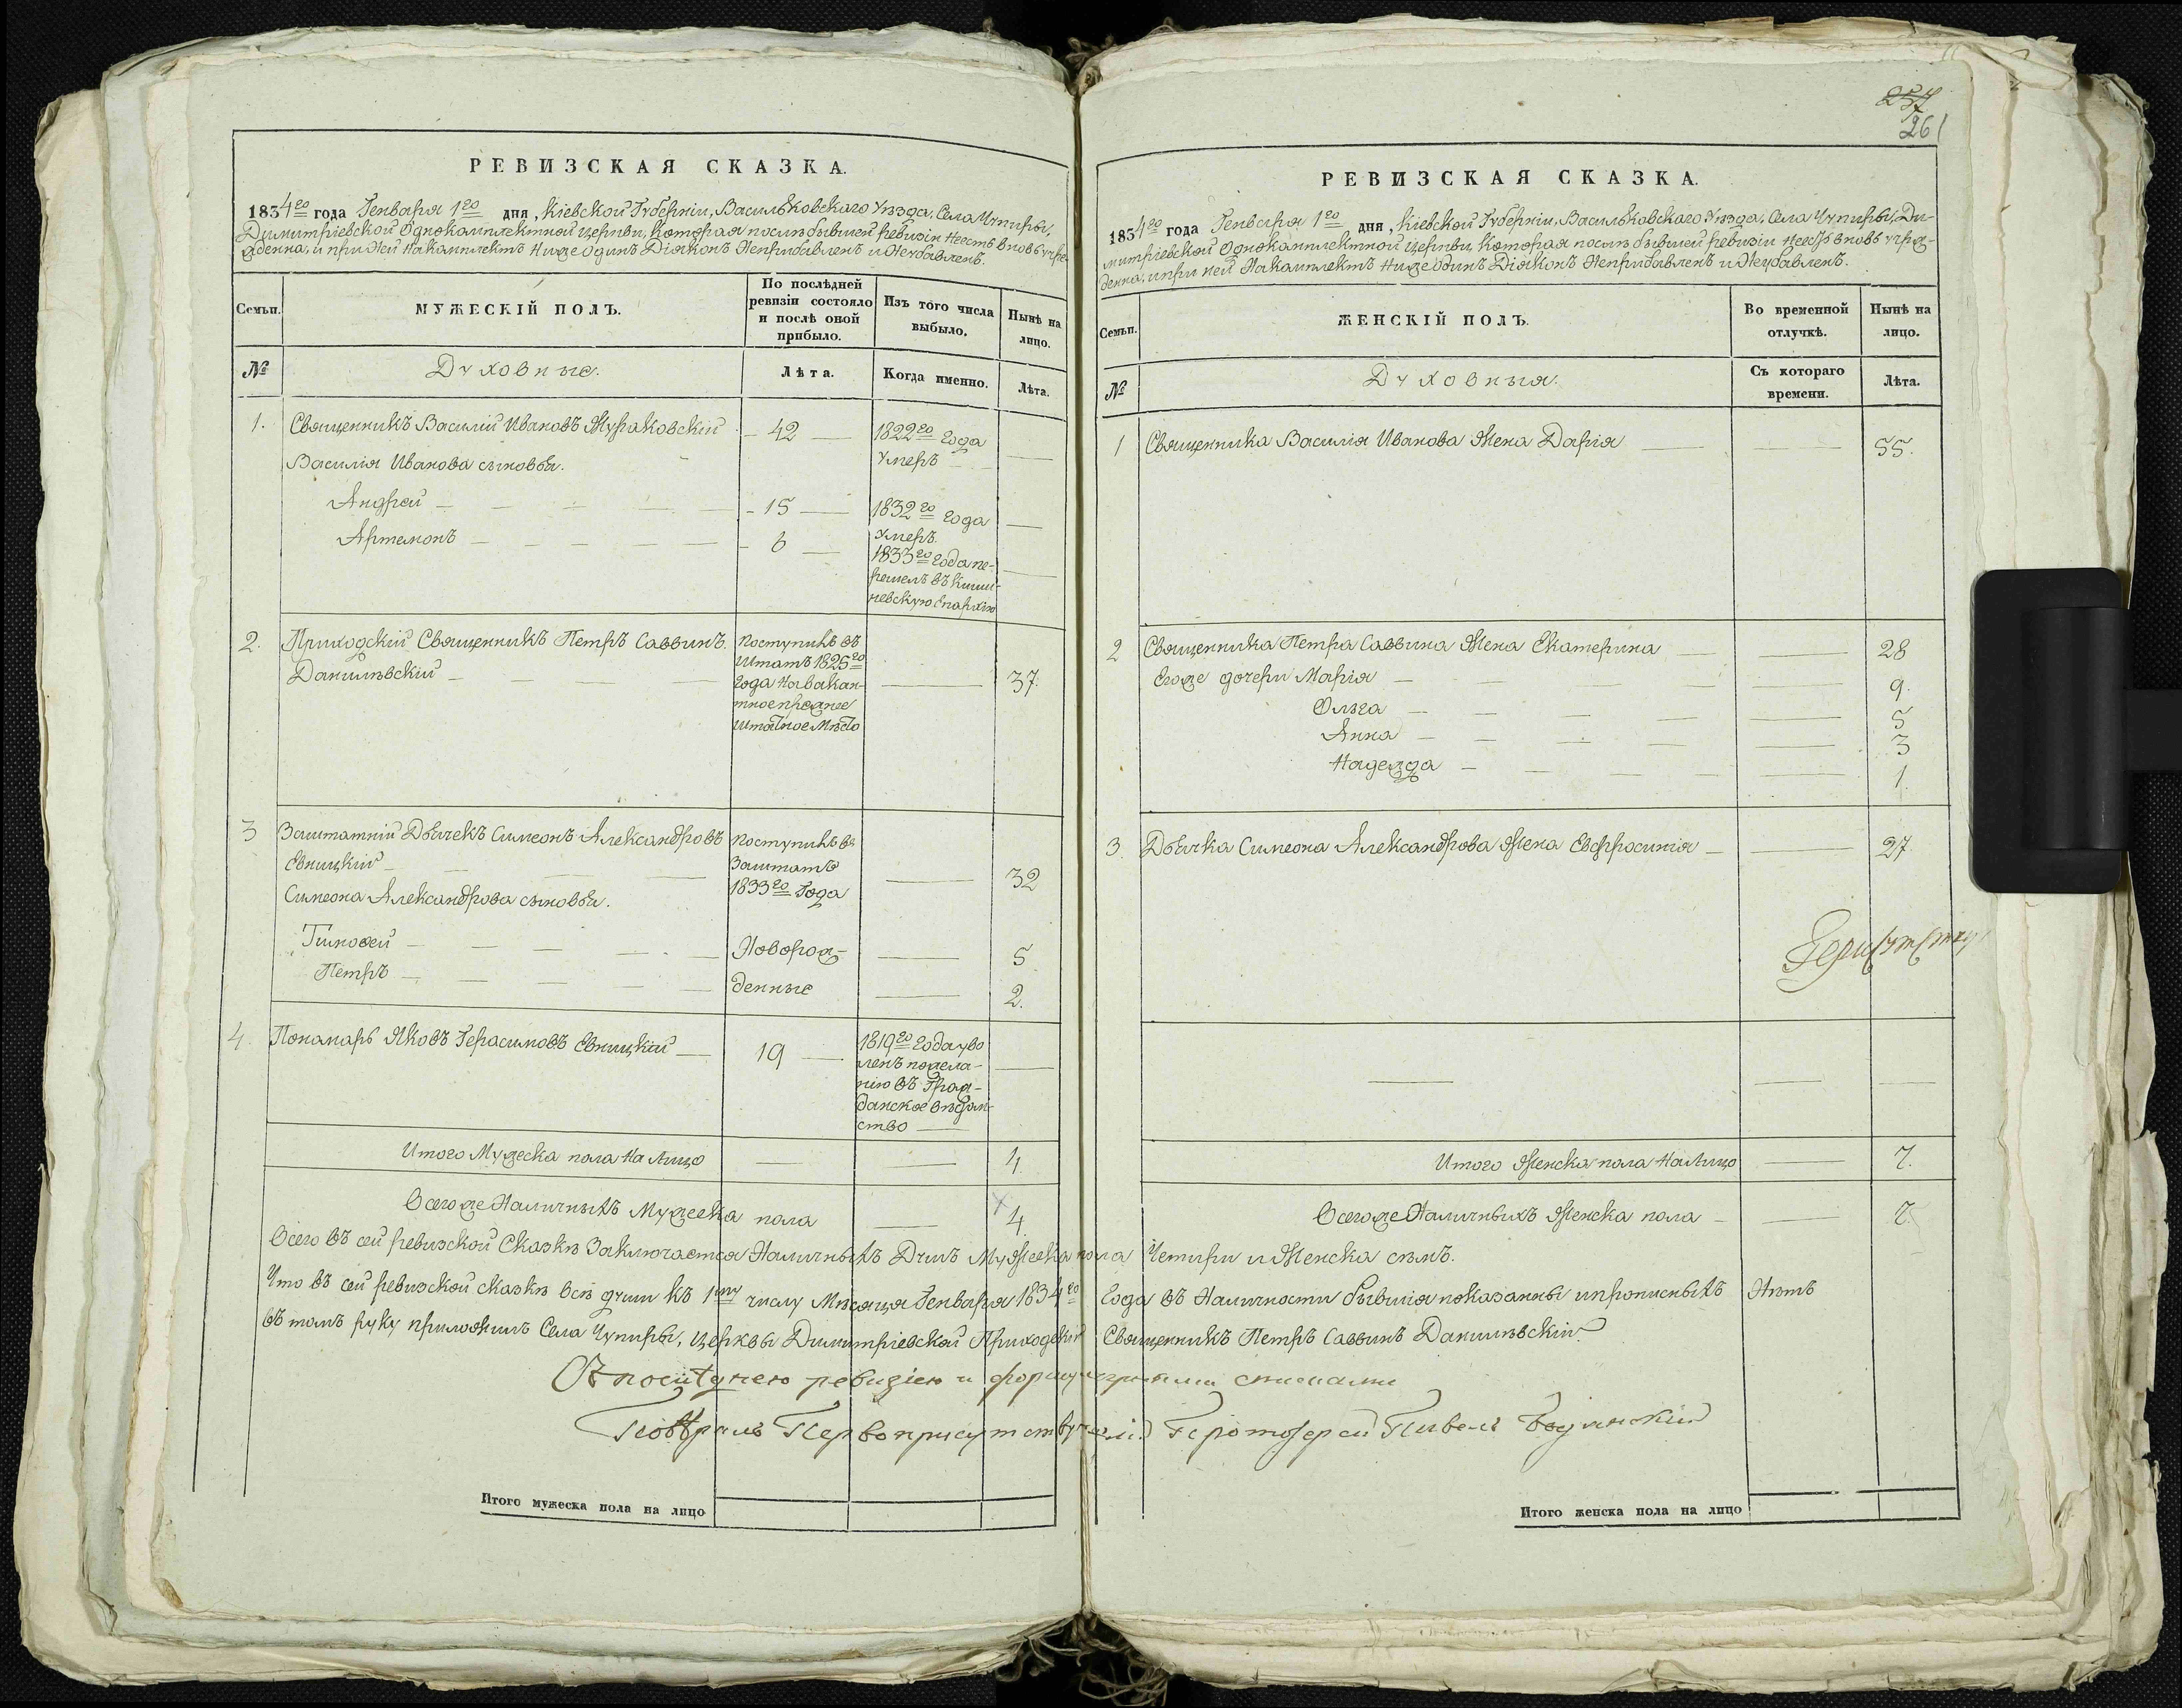 257
261
РЕВИЗСКАЯ СКАЗКА.
1834го года Генваря 1го дня, Кіевской Губерніи, Васильковскаго Уѣзда, Села Чупиры,
Димитріевской Однокамплектной Церкви, которая послѣ бывшей ревизіи Неесть вновь учре-
жденна, и при Ней Накамплектъ Ниже Одинъ Діяконъ Неприбавленъ и Неубавленъ.
Семьи.
МУЖЕСКІЙ ПОЛЪ.
По послѣдней
ревизіи состояло
и послѣ оной
прибыло.
Изъ того числа
выбыло.
Нынѣ на
лицо.
№
Духовные.
Лѣта.
Когда именно.
Лѣта.
1. Священникъ Василій Ивановъ Жураковскій 42 1822го года
Умеръ
Василія Иванова сыновья.
Андрей 15 1832го года
Умеръ.
Артемонъ 6 1833го года пе-
решелъ въ Киши-
невскую Епархію
2. Приходскій Священникъ Петръ Саввинъ
Данилѣвскій 37.
Поступилъ въ
Штатъ 1825го
года на вакан-
тное прежнее
Штатное Мѣсто
3 Заштатній Дьячекъ Симеонъ Александровъ
Евницкій 32
Поступилъ въ
Заштатъ
1833го Года
Симеона Александрова сыновья.
Тимофей Новорож- 5
Петръ денные 2.
4. Понамарь Яковъ Герасимовъ Евницкій 19
1819го года уво
ленъ пожела-
нію въ Граж-
данское вѣдом-
ство
Итого Мужеска пола На Лицо 4
Всего же Наличныхъ Мужеска пола 4.
РЕВИЗСКАЯ СКАЗКА.
1834го года Генваря 1го дня, Кіевской Губерніи, Васильковскаго Уѣзда, Села Чупиры, Ди-
митріевской Однокамплектной Церкви которая послѣ бывшей ревизіи Неесть вновь учре-
жденна, и при ней Накамплектъ Ниже Одинъ Діяконъ Неприбавленъ и Неубавленъ.
Семьи.
ЖЕНСКІЙ ПОЛЪ.
Во временной
отлучкѣ.
Нынѣ на
лицо.
№
Духовныя.
Съ котораго
времени.
Лѣта.
1 Священника Василія Иванова Жена Дарія 55.
2 Священника Петра Саввина Жена Екатерина 28
Егоже дочери Марія 9.
Ольга 5
Анна 3
Надежда 1.
3. Дьячка Симеона Александрова Жена Евфросинія 27.
Итого Женска пола На Лицо 7.
Всего же Наличныхъ Женска пола 7.
Всего въ сей ревизской Сказкѣ Заключается Наличныхъ Душъ Мужеска пола Четири и Женска сѣмъ.
Что въ сей ревизской сказкѣ всѣ души къ 1му числу Мѣсяца Генваря 1834го года въ Наличности бывшія показанны и прописныхъ Нѣтъ
въ томъ руку приложилъ Села Чупиры, Церквы Димитріевской Приходскій Священникъ Петръ Саввинъ Данилѣвскій
Съ послѣднею ревизіею и формулярными списками
Повѣрялъ Первоприсутствующій Протоіерей Павелъ
Итого мужеска пола на лицо
Итого женска пола на лицо